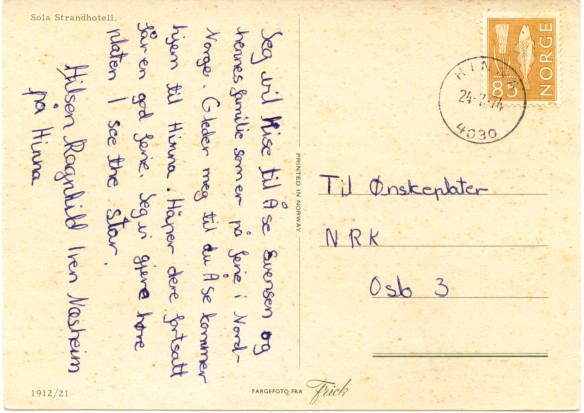 Sola Strandhotell.
Jeg vil hise til Åse Svensen og
hennes familie som er på ferie i Nord-
Norge. Gleder meg til du Åse kommer
hjem til Hinna. Håper dere fortsatt
får en god ferie. Jeg vi gjerne høre
platen I see the star.
Hilsen Ragnhild Iren Næsheim
på Hinna
PRINTED IN NORWAY
NORGE
85
HINNA
24-7-74
4030
Til Ønskeplater
NRK
Oslo 3
1912/21
FARGEFOTO FRA Frick